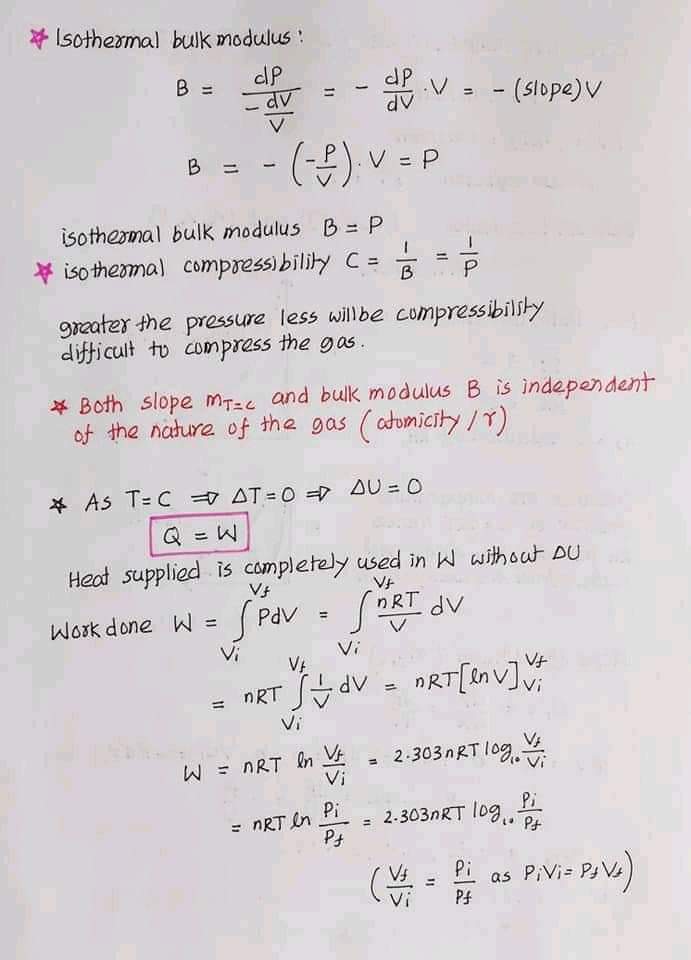 ☆ Isothermal bulk modulus:
B = dP / (-dV/V) = - dP/dV · V = - (slope) V
B = - (-P/V) · V = P
isothermal bulk modulus B = P
☆ isothermal compressibility C = 1/B = 1/P
greater the pressure less will be compressibility
difficult to compress the gas.
☆ Both slope m_T=C and bulk modulus B is independent
of the nature of the gas (atomicity / γ)
☆ As T = C ⇒ ΔT = 0 ⇒ ΔU = 0
Q = W
Heat supplied is completely used in W without ΔU
Work done W = ∫_Vi^Vf PdV = ∫_Vi^Vf nRT/V dV
= nRT ∫_Vi^Vf 1/V dV = nRT [ln V]_Vi^Vf
W = nRT ln Vf/Vi = 2.303 nRT log₁₀ Vf/Vi
= nRT ln Pi/Pf = 2.303 nRT log₁₀ Pi/Pf
(Vf/Vi = Pi/Pf as PiVi = PfVf)